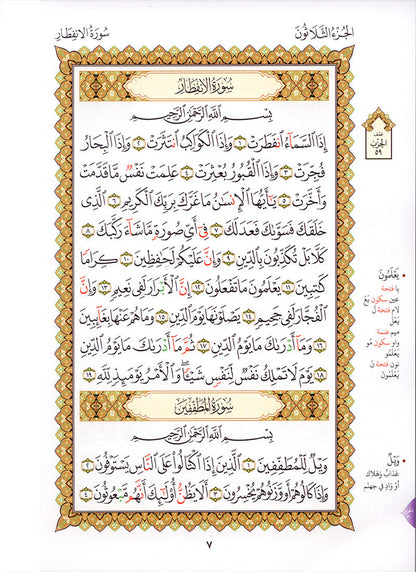 الجُزءُ الثَّلَاثُونَ
سُورَةُ الانفِطَار
سُورَةُ الِانفِطَارِ
بِسْمِ اللَّهِ الرَّحْمَٰنِ الرَّحِيمِ
إِذَا السَّمَاءُ انفَطَرَتْ ١ وَإِذَا الْكَوَاكِبُ انتَثَرَتْ ٢ وَإِذَا الْبِحَارُ
فُجِّرَتْ ٣ وَإِذَا الْقُبُورُ بُعْثِرَتْ ٤ عَلِمَتْ نَفْسٌ مَّا قَدَّمَتْ
وَأَخَّرَتْ ٥ يَٰأَيُّهَا الْإِنسَٰنُ مَا غَرَّكَ بِرَبِّكَ الْكَرِيمِ ٦ الَّذِي
خَلَقَكَ فَسَوَّىٰكَ فَعَدَلَكَ ٧ فِي أَيِّ صُورَةٍ مَّا شَاءَ رَكَّبَكَ ٨
كَلَّا بَلْ تُكَذِّبُونَ بِالدِّينِ ٩ وَإِنَّ عَلَيْكُمْ لَحَٰفِظِينَ ١٠ كِرَامًا
كَٰتِبِينَ ١١ يَعْلَمُونَ مَا تَفْعَلُونَ ١٢ إِنَّ الْأَبْرَارَ لَفِي نَعِيمٍ ١٣ وَإِنَّ
الْفُجَّارَ لَفِي جَحِيمٍ ١٤ يَصْلَوْنَهَا يَوْمَ الدِّينِ ١٥ وَمَا هُمْ عَنْهَا بِغَائِبِينَ
١٦ وَمَا أَدْرَىٰكَ مَا يَوْمُ الدِّينِ ١٧ ثُمَّ مَا أَدْرَىٰكَ مَا يَوْمُ الدِّينِ
١٨ يَوْمَ لَا تَمْلِكُ نَفْسٌ لِّنَفْسٍ شَيْـًٔا ۖ وَالْأَمْرُ يَوْمَئِذٍ لِّلَّهِ ١٩
سُورَةُ المُطَفِّفِينَ
بِسْمِ اللَّهِ الرَّحْمَٰنِ الرَّحِيمِ
وَيْلٌ لِّلْمُطَفِّفِينَ ١ الَّذِينَ إِذَا اكْتَالُوا عَلَى النَّاسِ يَسْتَوْفُونَ ٢
وَإِذَا كَالُوهُمْ أَو وَّزَنُوهُمْ يُخْسِرُونَ ٣ أَلَا يَظُنُّ أُولَٰئِكَ أَنَّهُم مَّبْعُوثُونَ ٤
نصف
الحزب
٥٩
• يَعْلَمُونَ
يا فتحة
عين سكون يَعْ
لام فتحة لَ
يَعْلَ
ميم ضمة
واو سكون مُو
يَعْلَمُو
نون فتحة نَ
يَعْلَمُونَ
• وَيْلٌ
عَذَابٌ وَهَلَاك
أوْ وَادٍ في جهنّم
٧